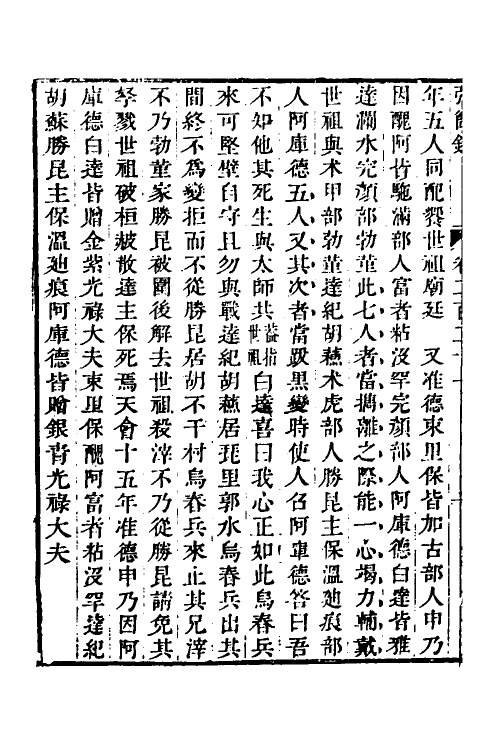 年五人同配饗世祖廟廷　又准德束里保皆加古部人申乃
因醜阿皆駞滿部人富者粘没罕完顔部人阿庫德白達皆雅
達瀾水完顔部勃菫此七人者當攜離之際能一心竭力輔戴
世祖與术甲部勃菫達紀胡蘇术虎部人勝昆主保溫廸痕部
人阿庫德五人又其次者當跋黑變時使人召阿庫德答曰吾
不知他其死生與太師共蓋指世祖白達喜曰我心正如此烏春兵
來可堅壁自守且勿與戰達紀胡蘇居琵里郭水烏春兵出其
間終不爲變拒而不從勝昆居胡不干村烏春兵來止其兄滓
不乃勃菫家勝昆被圍後解去世祖殺滓不乃從勝昆請免其
孥戮世祖破桓赧散達主保死焉天會十五年准德申乃因阿
庫德白達皆贈金紫光祿大夫束里保醜阿富者粘没罕達紀
胡蘇勝昆主保溫廸痕阿庫德皆贈銀青光祿大夫